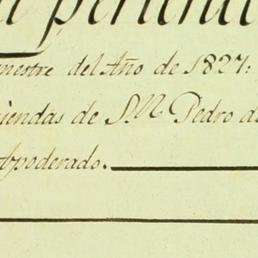 pertene
mestre del Año de 1827:
iendas de S.M Pedro d
Apoderado.